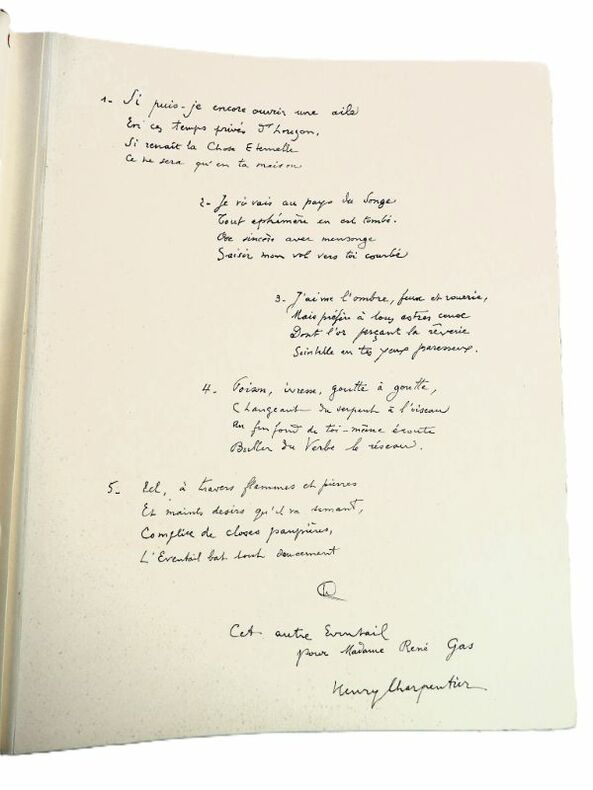 1- Si puis-je encore ouvrir une aile
En ces temps privés d'horizon,
Si renaît la Chose Eternelle
Ce ne sera qu'en ta maison
2- Je vivais au pays du Songe
Tout ephémère en est tombé.
Ose sincère avec mensonge
Saisir mon vol vers toi courbé
3- J'aime l'ombre, feux et rouerie,
Mais préfère à tous astres ceux
Dont l'or perçant la rêverie
Scintille en tes yeux paresseux.
4- Poison, ivresse, goutte à goutte,
Changeant du serpent à l'oiseau
Au fin fond de toi-même écoute
du Verbe le réseau.
5- Tel, à travers flammes et pierres
Et maints désirs qu'il va semant,
Complice de closes paupières,
L'Eventail bat tout doucement
Cet autre Eventail
pour Madame René Gas
Henry Charpentier